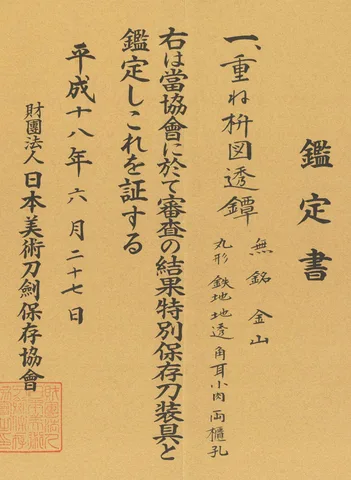 鑑定書
一、重ね枡図透鐔
無銘 金山
丸形 鉄地 地透 角耳小肉 両櫃孔
右は當協會に於て審査の結果特別保存刀装具と
鑑定しこれを証する
平成十八年六月二十七日
財團法人 日本美術刀劍保存協會